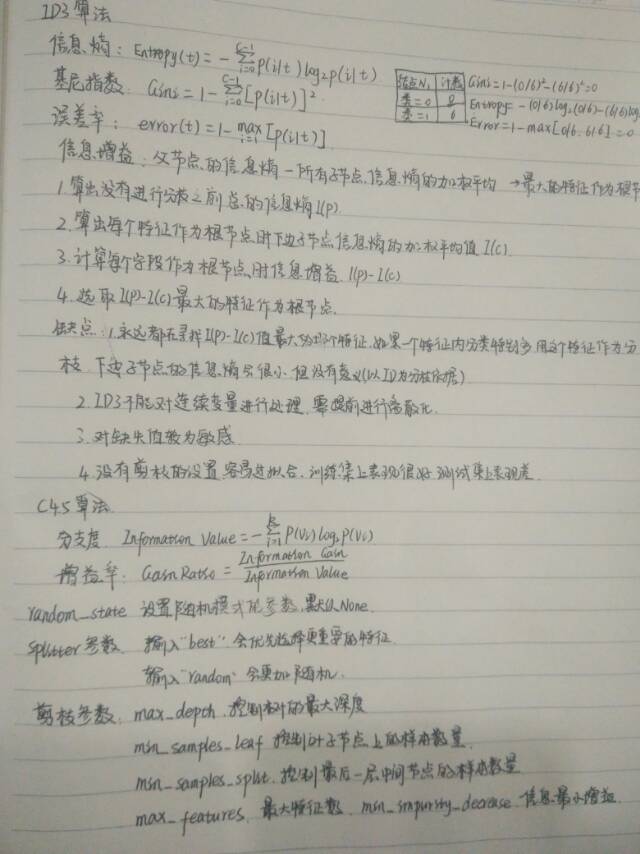 ID3算法
信息熵: Entropy(t) = -∑_{i=0}^{c-1} p(i|t) log₂p(i|t)
基尼指数: Gini = 1-∑_{i=0}^{c-1} [p(i|t)]²
结点N₁ 计数
类=0 0
类=1 6
Gini = 1-(0/6)²-(6/6)² = 0
Entropy = -(0/6)log₂(0/6)-(6/6)log
Error = 1-max[0/6, 6/6] = 0
误差率: error(t) = 1-max_{i=1}[p(i|t)]
信息增益: 父节点的信息熵-所有子节点信息熵的加权平均 → 最大的特征作为根节
1.算出没有进行分裂之前总的信息熵I(P).
2.算出每个特征作为根节点时下边子节点信息熵的加权平均值I(c).
3.计算每个字段作为根节点时信息增益 I(P)-I(c)
4.选取I(P)-I(c)最大的特征作为根节点.
缺点: 1.永远都在寻找I(P)-I(c)值最大的那个特征,如果一个特征内分类特别多,用这个特征作为分
枝 下边子节点的信息熵会很小,但没有意义(以ID为分枝依据)
2.ID3不能对连续变量进行处理,需提前进行离散化.
3.对缺失值较为敏感
4.没有剪枝的设置,容易过拟合,训练集上表现很好 测试集上表现差.
C4.5算法
分支度 Information Value = -∑_{i=1}^{k} P(Vi)log₂P(Vi)
增益率: Gain Ratio = Information Gain / Information Value
random_state 设置随机模式的参数,默认None.
splitter参数. 输入"best" 会优先选择更重要的特征.
输入"random" 会更加随机.
剪枝参数. max_depth. 控制树的最大深度
min_samples_leaf 控制叶子节点上的样本数量.
min_samples_split. 控制最后一层中间节点的样本数量
max_features. 最大特征数. min_impurity_decrease 信息最小增益.